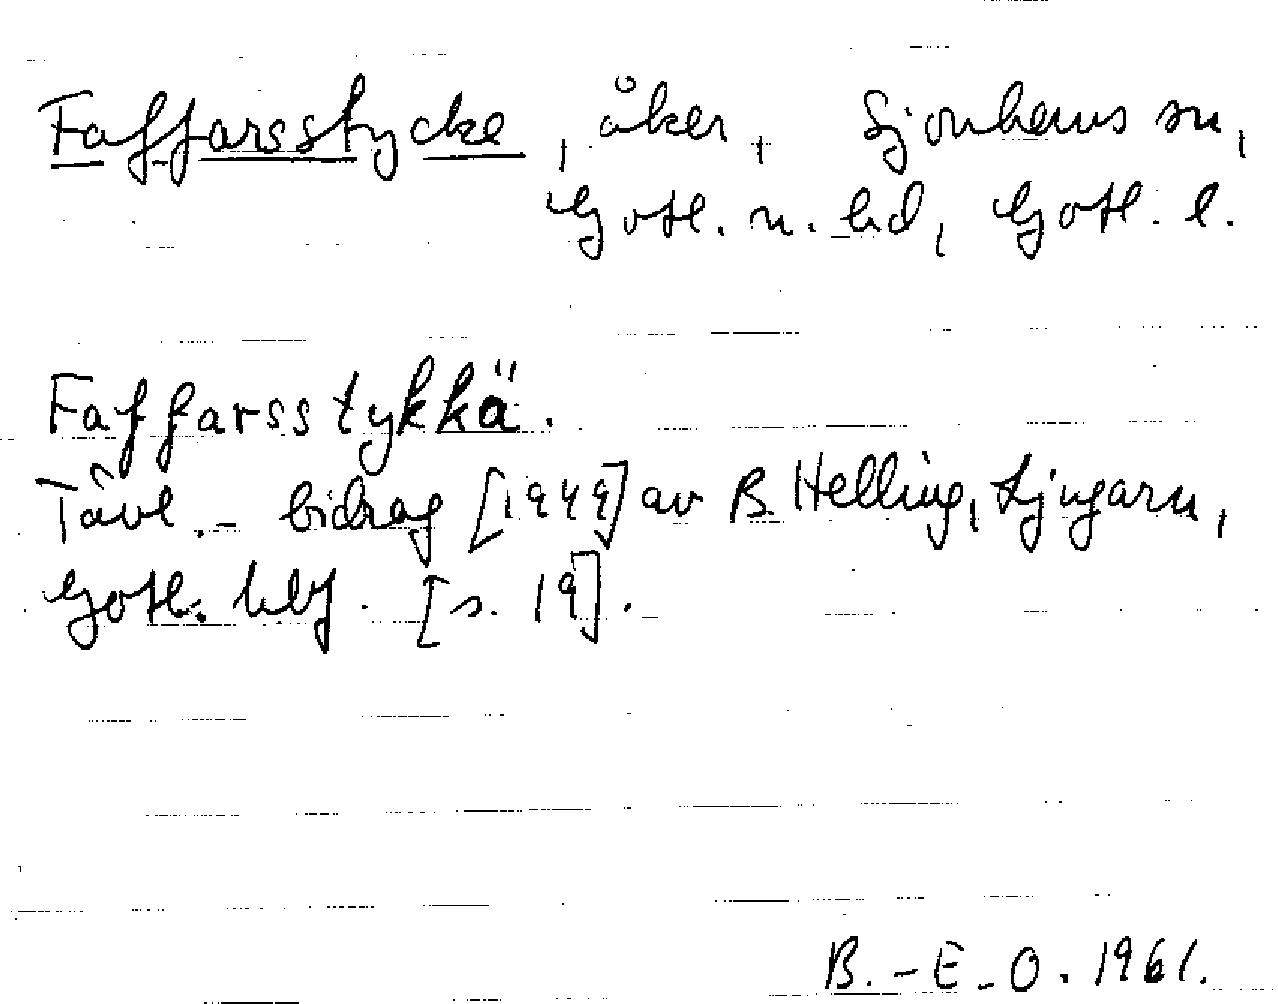 Faffarsstycke, åker, Sjonhems sn,
Gotl. n. hd, Gotl. l.
Faffarsstykkä.
Tävl.- bidrag [1949] av B. Helling, Ljugarn,
Gotl. hbf. [s. 19].
B.-E-O. 1961.